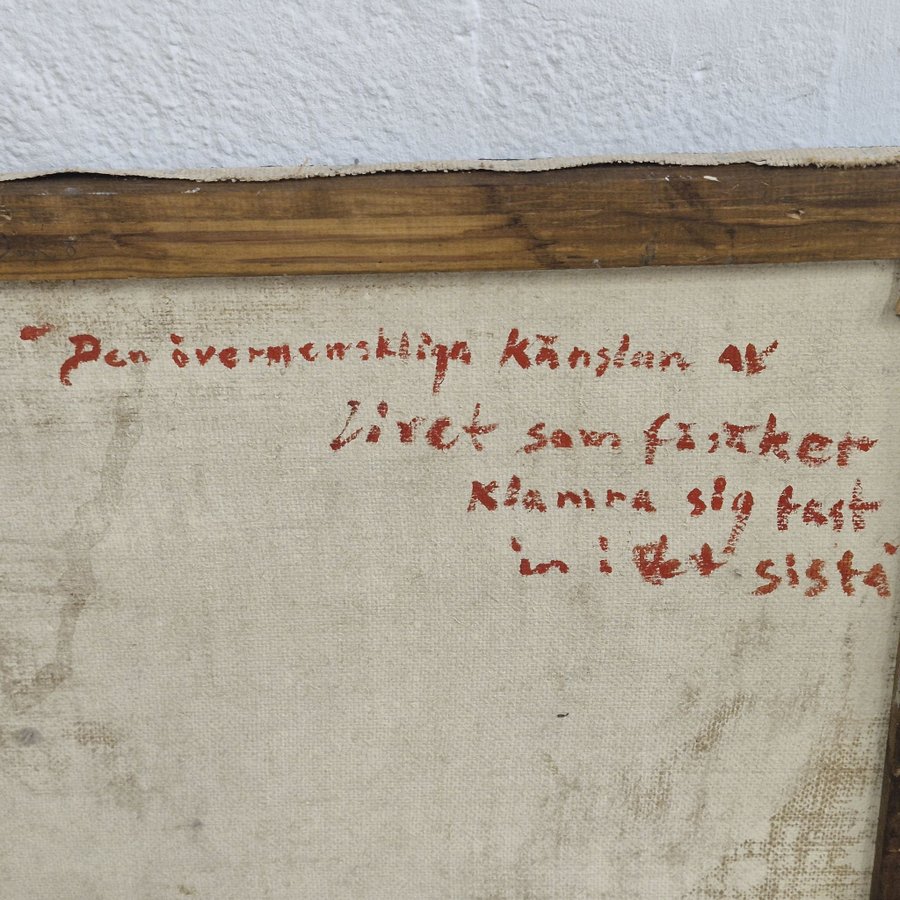 "Den övermenskliga känslan av
Livet som försöker
Klamra sig fast
in i det sista"